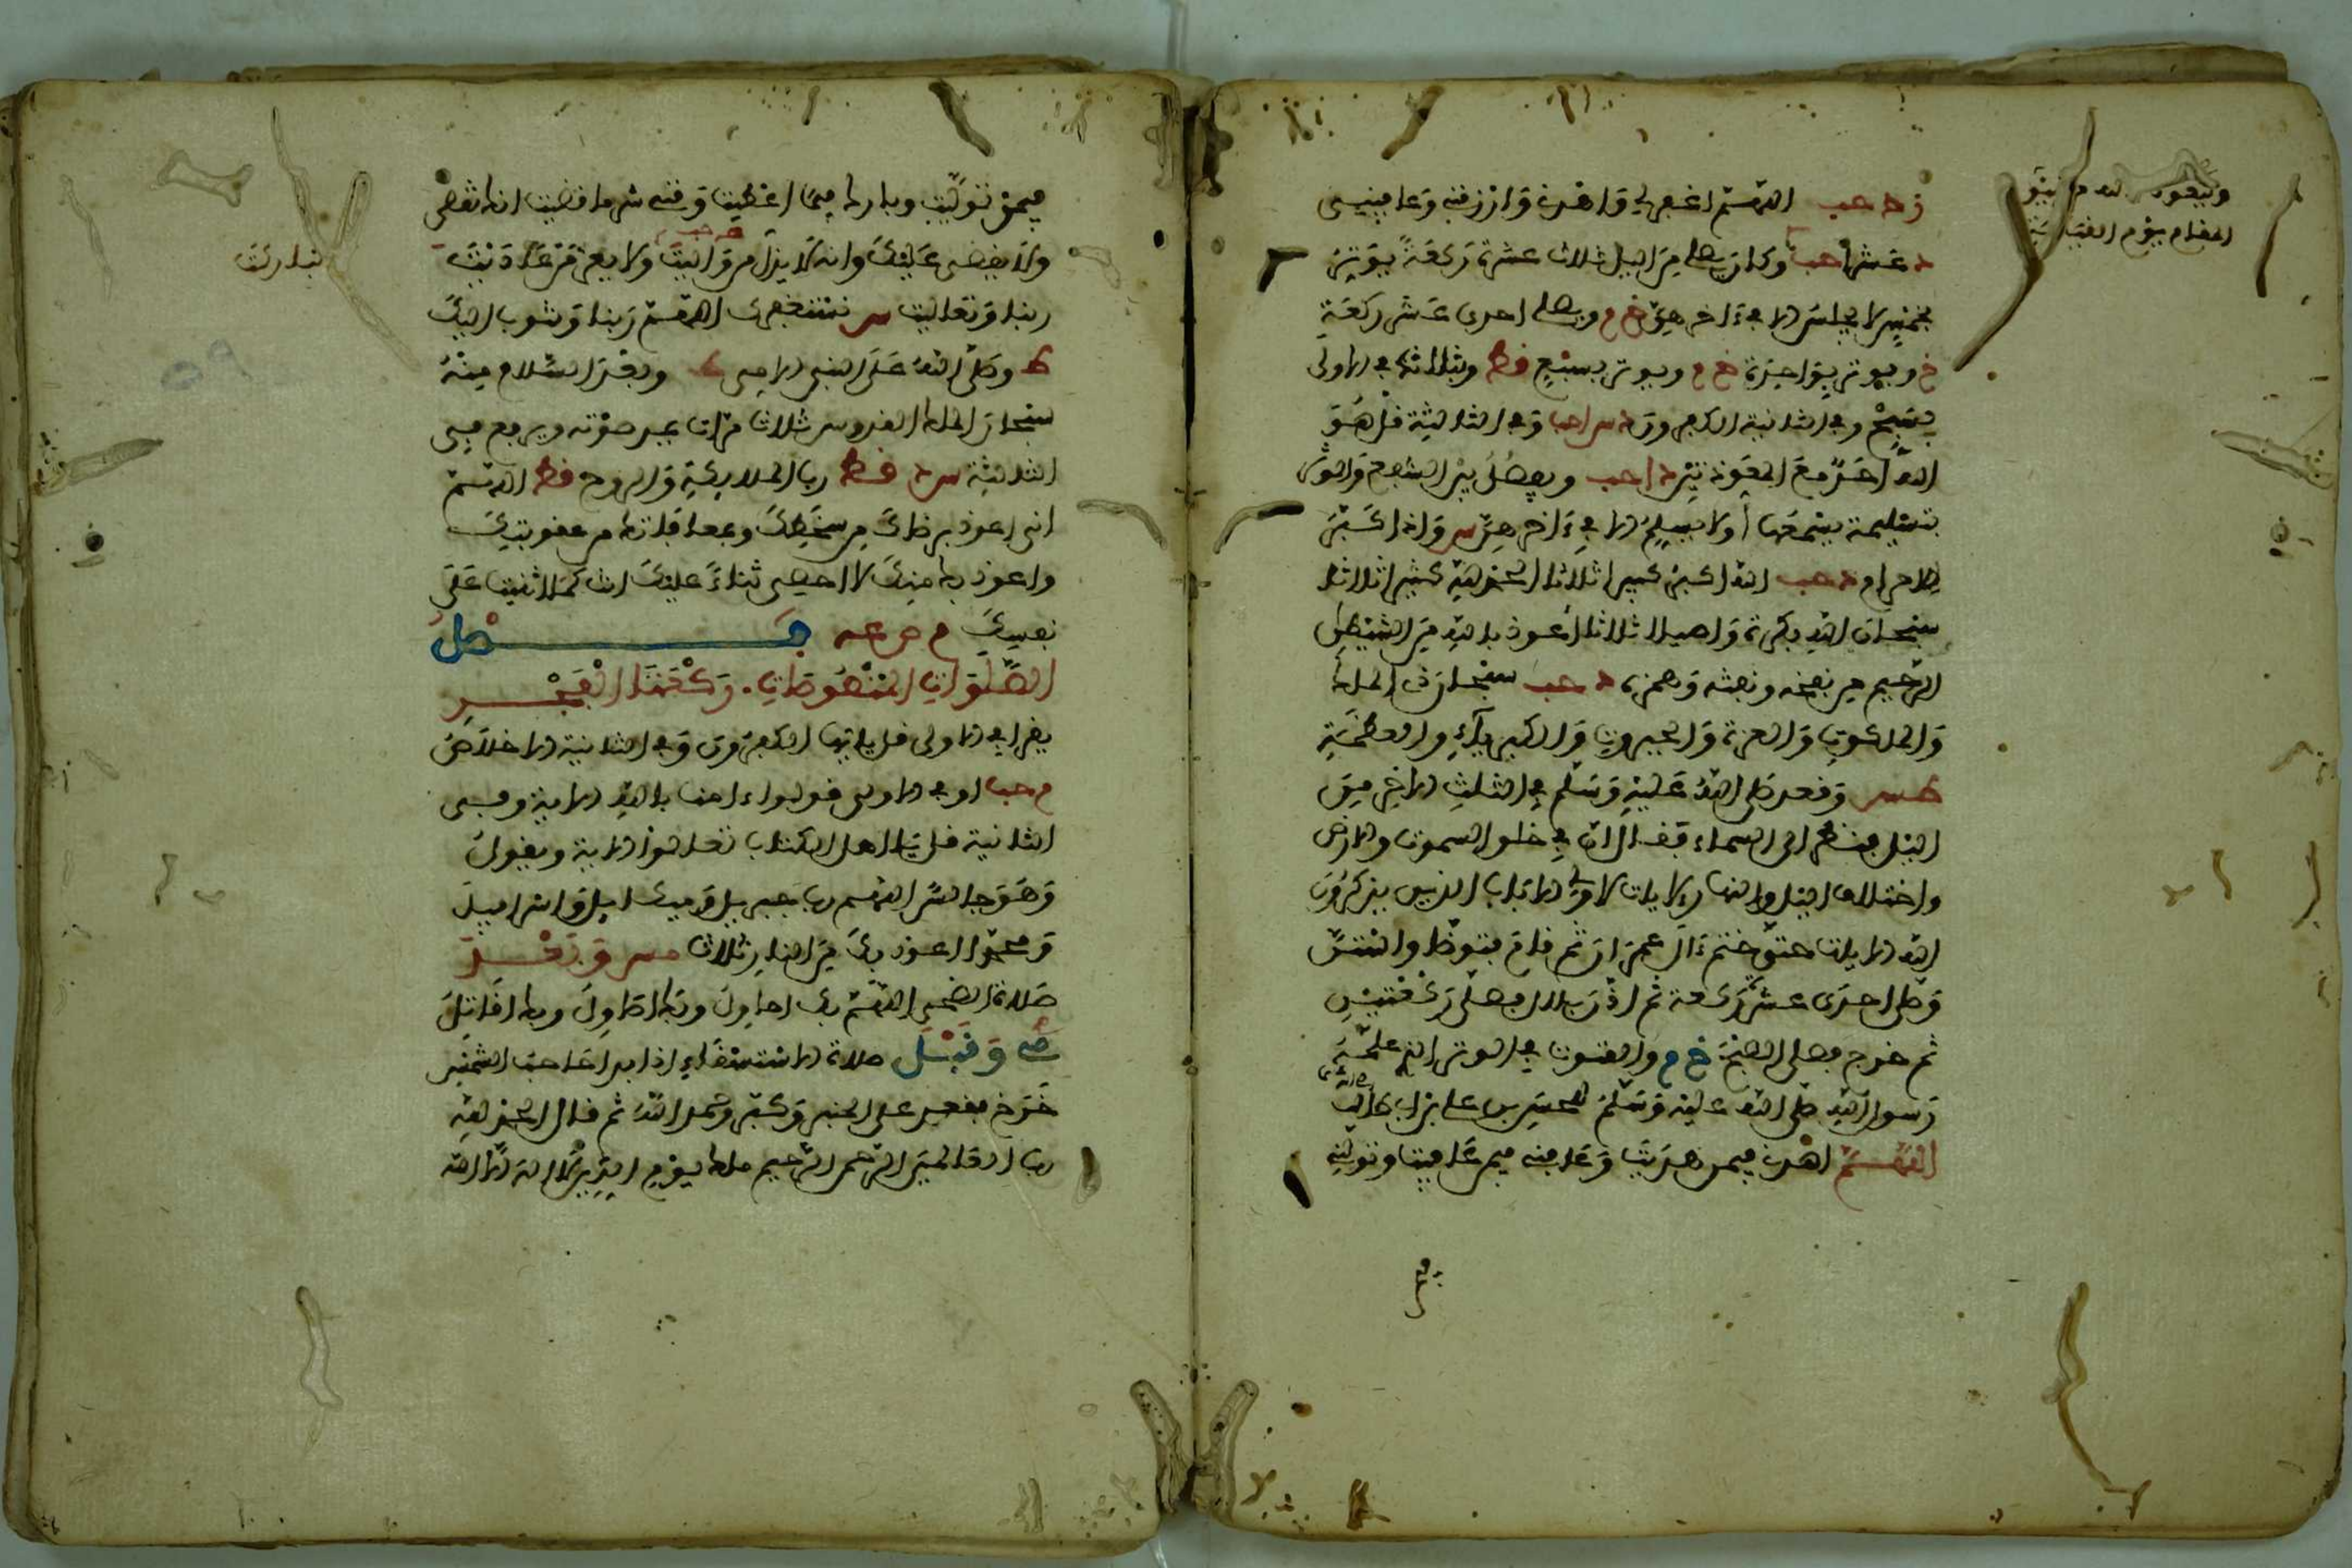 اللهم اغفر لي واهدني وارزقني وعافني
عشرا حب وكان يصلي من الليل ثلاث عشرة ركعة يوتر
بخمس لا يجلس الا في ءاخرهن خ م ويصلي احدى عشر ركعة
خ ويوتر بواحدة خ م ويوتر بسبع قط وبثلاث في الاولى
بسبح وفي الثانية الكافرون د س حب وفي الثالثة قل هو
الله احد مع المعوذتين د حب ويفصل بين الشفع والوتر
بتسليمة يسمعها ا ولا يسلم الا في ءاخرهن س واذا كبر
للاحرام د حب الله اكبر كبيرا ثلاثا الحمد لله كثيرا ثلاثا
سبحان الله بكرة واصيلا ثلاثا اعوذ بالله من الشيطان
الرجيم من نفخه ونفثه وهمزه د حب سبحان ذي الملك
والملكوت والعزة والجبروت والكبرياء والعظمة
طس وقعد صلى الله عليه وسلم في الثلث الاخر من
الليل فنظر الى السماء فقال ان في خلق السموت والارض
واختلاف الليل والنهار لايات لاولي الالباب الذين يذكرون
الله الايات حتى ختم ءال عمران ثم قام فتوضا واستن
وصلى احدى عشر ركعة ثم اذن بلال فصلى ركعتين
ثم خرج فصلى الصبح خ م والقنوت في الوتر الذي علمه
رسول الله صلى الله عليه وسلم للحسن بن علي بن ابي طالب
اللهم اهدني فيمن هديت وعافني فيمن عافيت وتولني
فيمن توليت وبارك لي فيما اعطيت وقني شر ما قضيت انك تقضي
ولا يقضى عليك وانه لا يذل من واليت ولا يعز من عاديت
تباركت
ربنا وتعاليت س نستغفرك اللهم ربنا ونتوب اليك
وصلى الله على النبي الامي س وبعد السلام منه
سبحان الملك القدوس ثلاث مرات يمد صوته ويرفع في
الثالثة س د قط رب الملايكة والروح قط اللهم
اني اعوذ برضاك من سخطك وبمعافاتك من عقوبتك
واعوذ بك منك لا احصي ثناء عليك انت كما اثنيت على
نفسك م ص عه فصل
الصلوات المنصوصات. ركعتا الفجر
يقرا في الاولى قل يايها الكافرون وفي الثانية الاخلاص
م حب او في الاولى قولوا ءامنا بالله الاية وفي
الثانية قل ياهل الكتاب تعالوا الاية ويقول
وهو جالس اللهم رب جبريل وميكاءيل واسرافيل
ومحمد اعوذ بك من النار ثلاث مس وبعد
صلاة الضحى اللهم بك احاول وبك اصاول وبك اقاتل
ي وقبل صلاة الاستسقاء اذا بدا حاجب الشمس
خرج فقعد على المنبر وكبر وحمد الله ثم قال الحمد لله
رب العالمين الرحمن الرحيم ملك يوم الدين لا اله الا الله